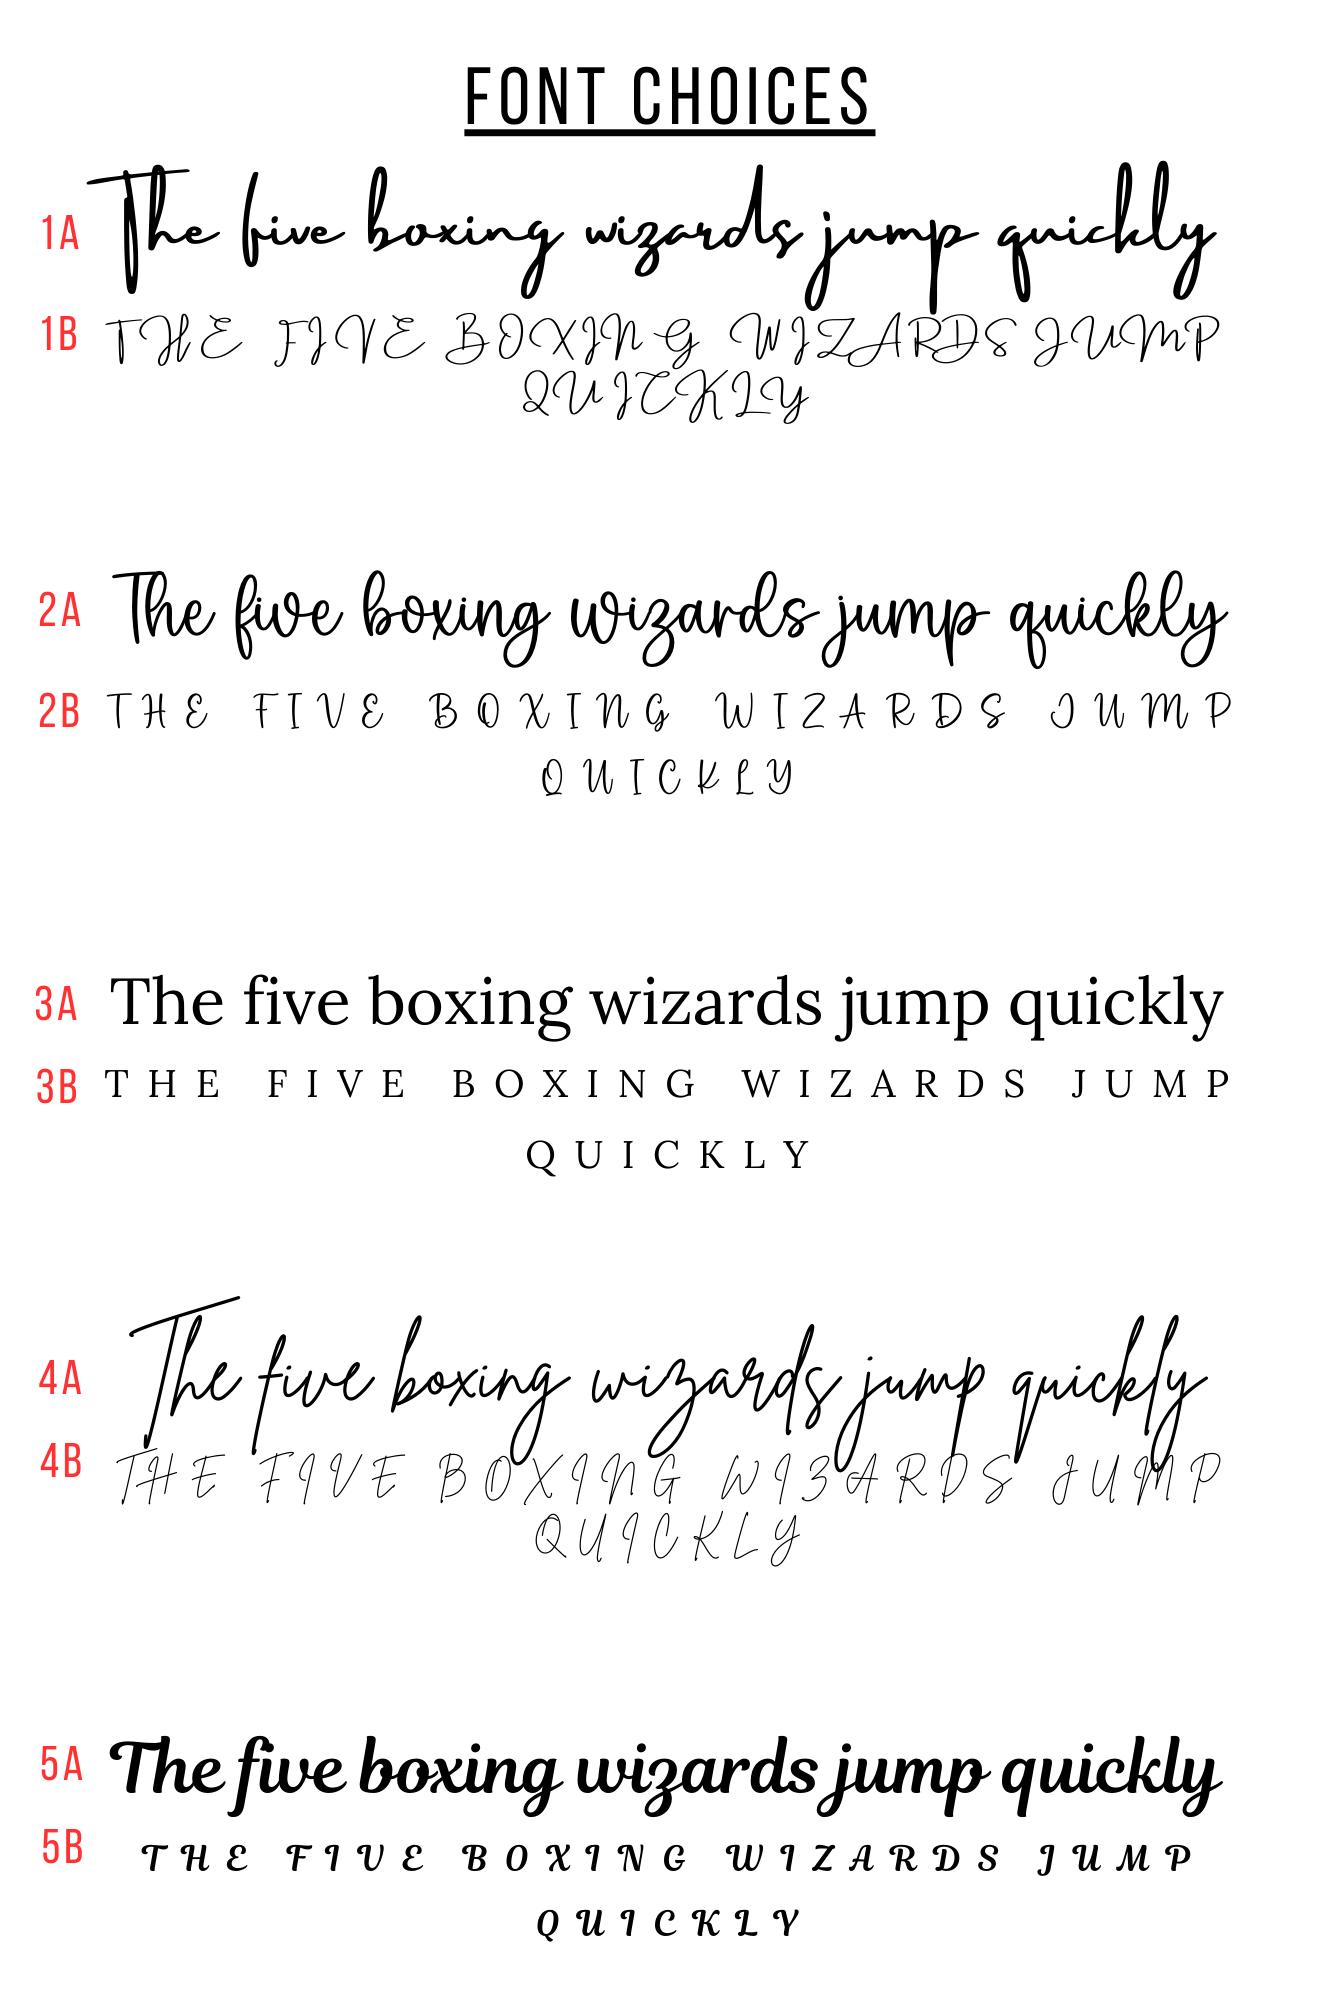 FONT CHOICES
1A The five boxing wizards jump quickly
1B THE FIVE BOXING WIZARDS JUMP
QUICKLY
2A The five boxing wizards jump quickly
2B THE FIVE BOXING WIZARDS JUMP
QUICKLY
3A The five boxing wizards jump quickly
3B THE FIVE BOXING WIZARDS JUMP
QUICKLY
4A The five boxing wizards jump quickly
4B THE FIVE BOXING WIZARDS JUMP
QUICKLY
5A The five boxing wizards jump quickly
5B THE FIVE BOXING WIZARDS JUMP
QUICKLY